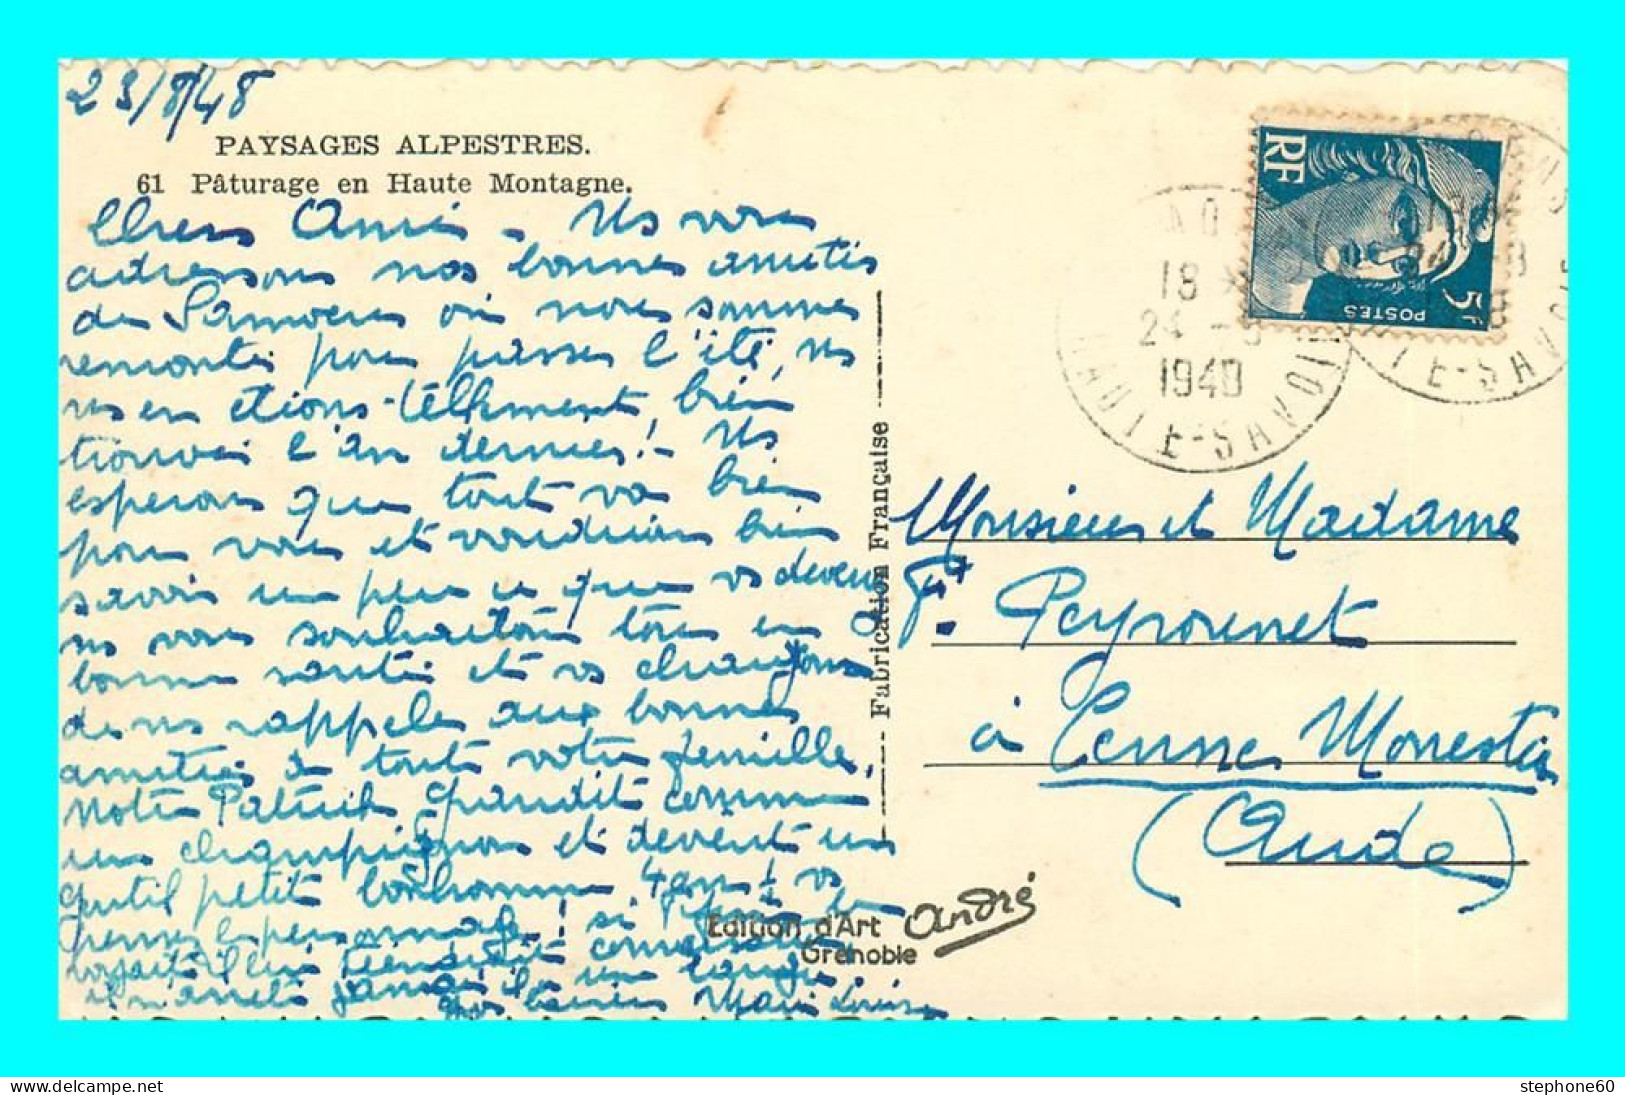 23/8/48
PAYSAGES ALPESTRES.
61 Pâturage en Haute Montagne.
Chers Amis - Ns vous
adressons nos bonnes amitiés
de Samoëns où nous sommes
remontés pour passer l'été, ns
ns en étions tellement bien
trouvés l'an dernier! - Ns
espérons que tout va bien
pour vous et voudrions bien
savoir un peu ce que vs devenez
ns vous souhaitons tous en
bonne santé et vs chargeons
de ns rappeler aux bonnes
amitiés à toute votre famille,
Notre Patrick grandit comme
un champignon et devient un
gentil petit bonhomme 4 ans! vs
verriez le personnage! si
il n'arrête jamais
Marie Louise
Fabrication Française
Edition d'Art André
Grenoble
RF
POSTES
5F
18 *
24 - 8
1948
HAUTE-SAVOIE
24 - 8
TE-SAVOIE
Monsieur et Madame
Ft Peyrounet
à Cenne Monestiés
(Aude)
stephone60